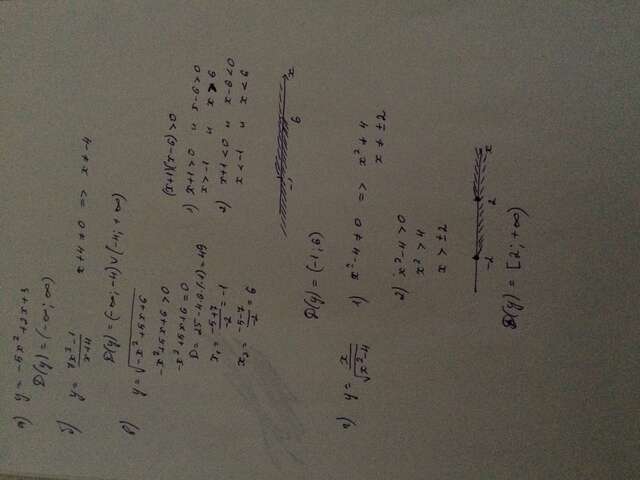 а) y = -5x²+2x+3
D(y) = (-∞; ∞)
б) y = 7x²-1 / x+4    x+4 ≠ 0 => x ≠ -4
D(y) = (-∞; -4) ∪ (-4; +∞)
в) y = √-x²+5x+6
-x²+5x+6 > 0
-x²+5x+6 = 0
D = 25-4·6·(-1) = 49
x₁ = -5+7 / -2 = -1
x₂ = -5-7 / -2 = 6
(x+1)(x-6) > 0
1) x+1 > 0 и x-6 > 0
x > -1 и x > 6
2) x+1 < 0 и x-6 < 0
x < -1 и x < 6
-1 6 x
D(y) = (-1; 6)
г) y = x / √x²-4
1) x²-4 ≠ 0 => x² ≠ 4
x ≠ ±2
2) x²-4 > 0
x² > 4
x > ±2
-2 2 x
D(y) = [2; +∞)